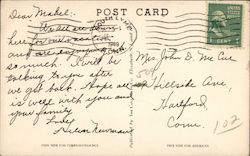 POST CARD
Dear Mabel:
We are all down
here for our vacation
and are enjoying it
so much. I will be
seeing you after
we get back. Hope all
is well with you and
your family.
Love
Helen Newman
Mrs John D. Mc Cue
Hillside Ave,
Hartford,
Conn.
102
THIS SIDE FOR CORRESPONDENCE
THIS SIDE FOR ADDRESS